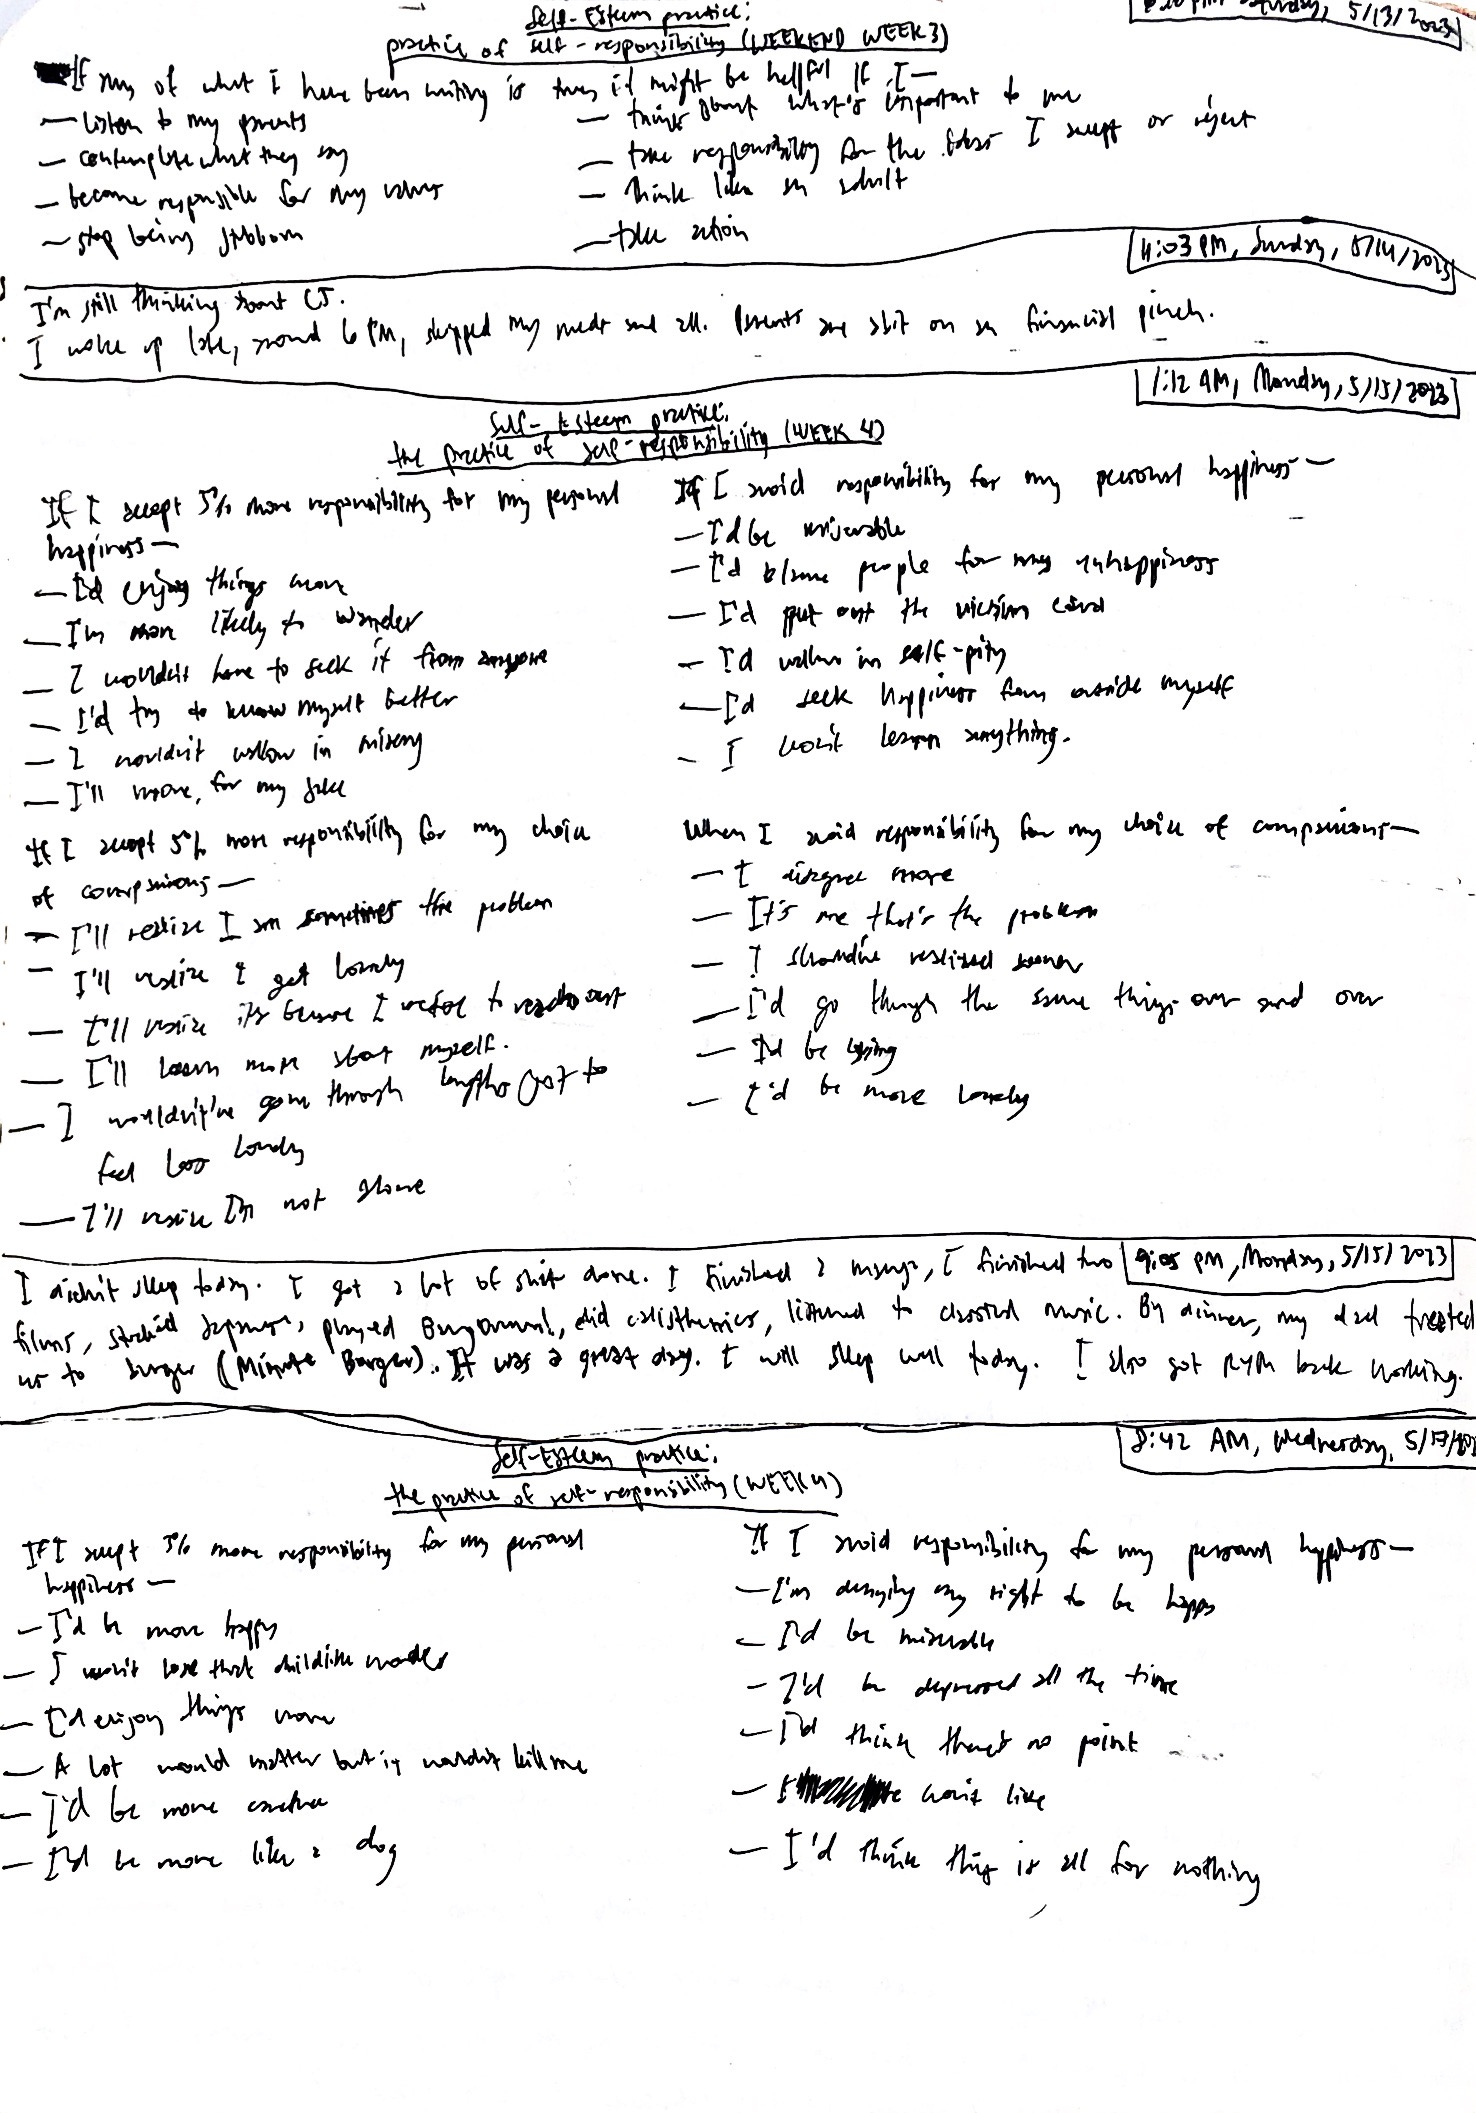 Self-Esteem practice:
PM, Saturday, 5/13/2023
practice of self-responsibility (WEEKEND WEEK 3)
If any of what I have been writing is true, it might be helpful if I—
— Listen to my parents
— contemplate what they say
— become responsible for my values
— stop being stubborn
— things about what's important to me
— take responsibility for the ideas I accept or reject
— think like an adult
— take action
4:03 PM, Sunday, 5/14/2023
I'm still thinking about CJ.
I woke up late, around 6 PM, skipped my meds and all. Parents are abit on an financial pinch.
1:12 AM, Monday, 5/15/2023
Self-Esteem practice:
the practice of self-responsibility (WEEK 4)
If I accept 5% more responsibility for my personal
happiness—
— I'd enjoy things more
— I'm more likely to wonder
— I wouldn't have to seek it from anyone
— I'd try to know myself better
— I wouldn't wallow in misery
— I'll move, for my sake
If I avoid responsibility for my personal happiness—
— I'd be miserable
— I'd blame people for my unhappiness
— I'd put out the victim card
— I'd wallow in self-pity
— I'd seek happiness from outside myself
— I won't learn anything.
If I accept 5% more responsibility for my choice
of companions—
— I'll realize I am sometimes the problem
— I'll realize I get lonely
— I'll realize it's because I refuse to reach out
— I'll learn more about myself.
— I wouldn't've gone through lengths just to
feel less lonely
— I'll realize I'm not alone
When I avoid responsibility for my choice of companions—
— I disagree more
— It's me that's the problem
— I should've realized sooner
— I'd go through the same things over and over
— I'd be lying
— I'd be more lonely
9:05 PM, Monday, 5/15/2023
I didn't sleep today. I got a lot of shit done. I finished a manga, I finished two
films, studied Japanese, played, did calisthenics, listened to classical music. By dinner, my dad treated
us to burger (Minute Burger). It was a great day. I will sleep well today. I also got RYM back working.
8:42 AM, Wednesday, 5/17/202
Self-Esteem practice:
the practice of self-responsibility (WEEK 4)
If I accept 5% more responsibility for my personal
happiness—
— I'd be more happy
— I won't lose that childlike wonder
— I'd enjoy things more
— A lot would matter but it wouldn't kill me
— I'd be more creative
— I'd be more like a dog
If I avoid responsibility for my personal happiness—
— I'm denying my right to be happy
— I'd be miserable
— I'd be depressed all the time
— I'd think there's no point
— I won't live
— I'd think this is all for nothing